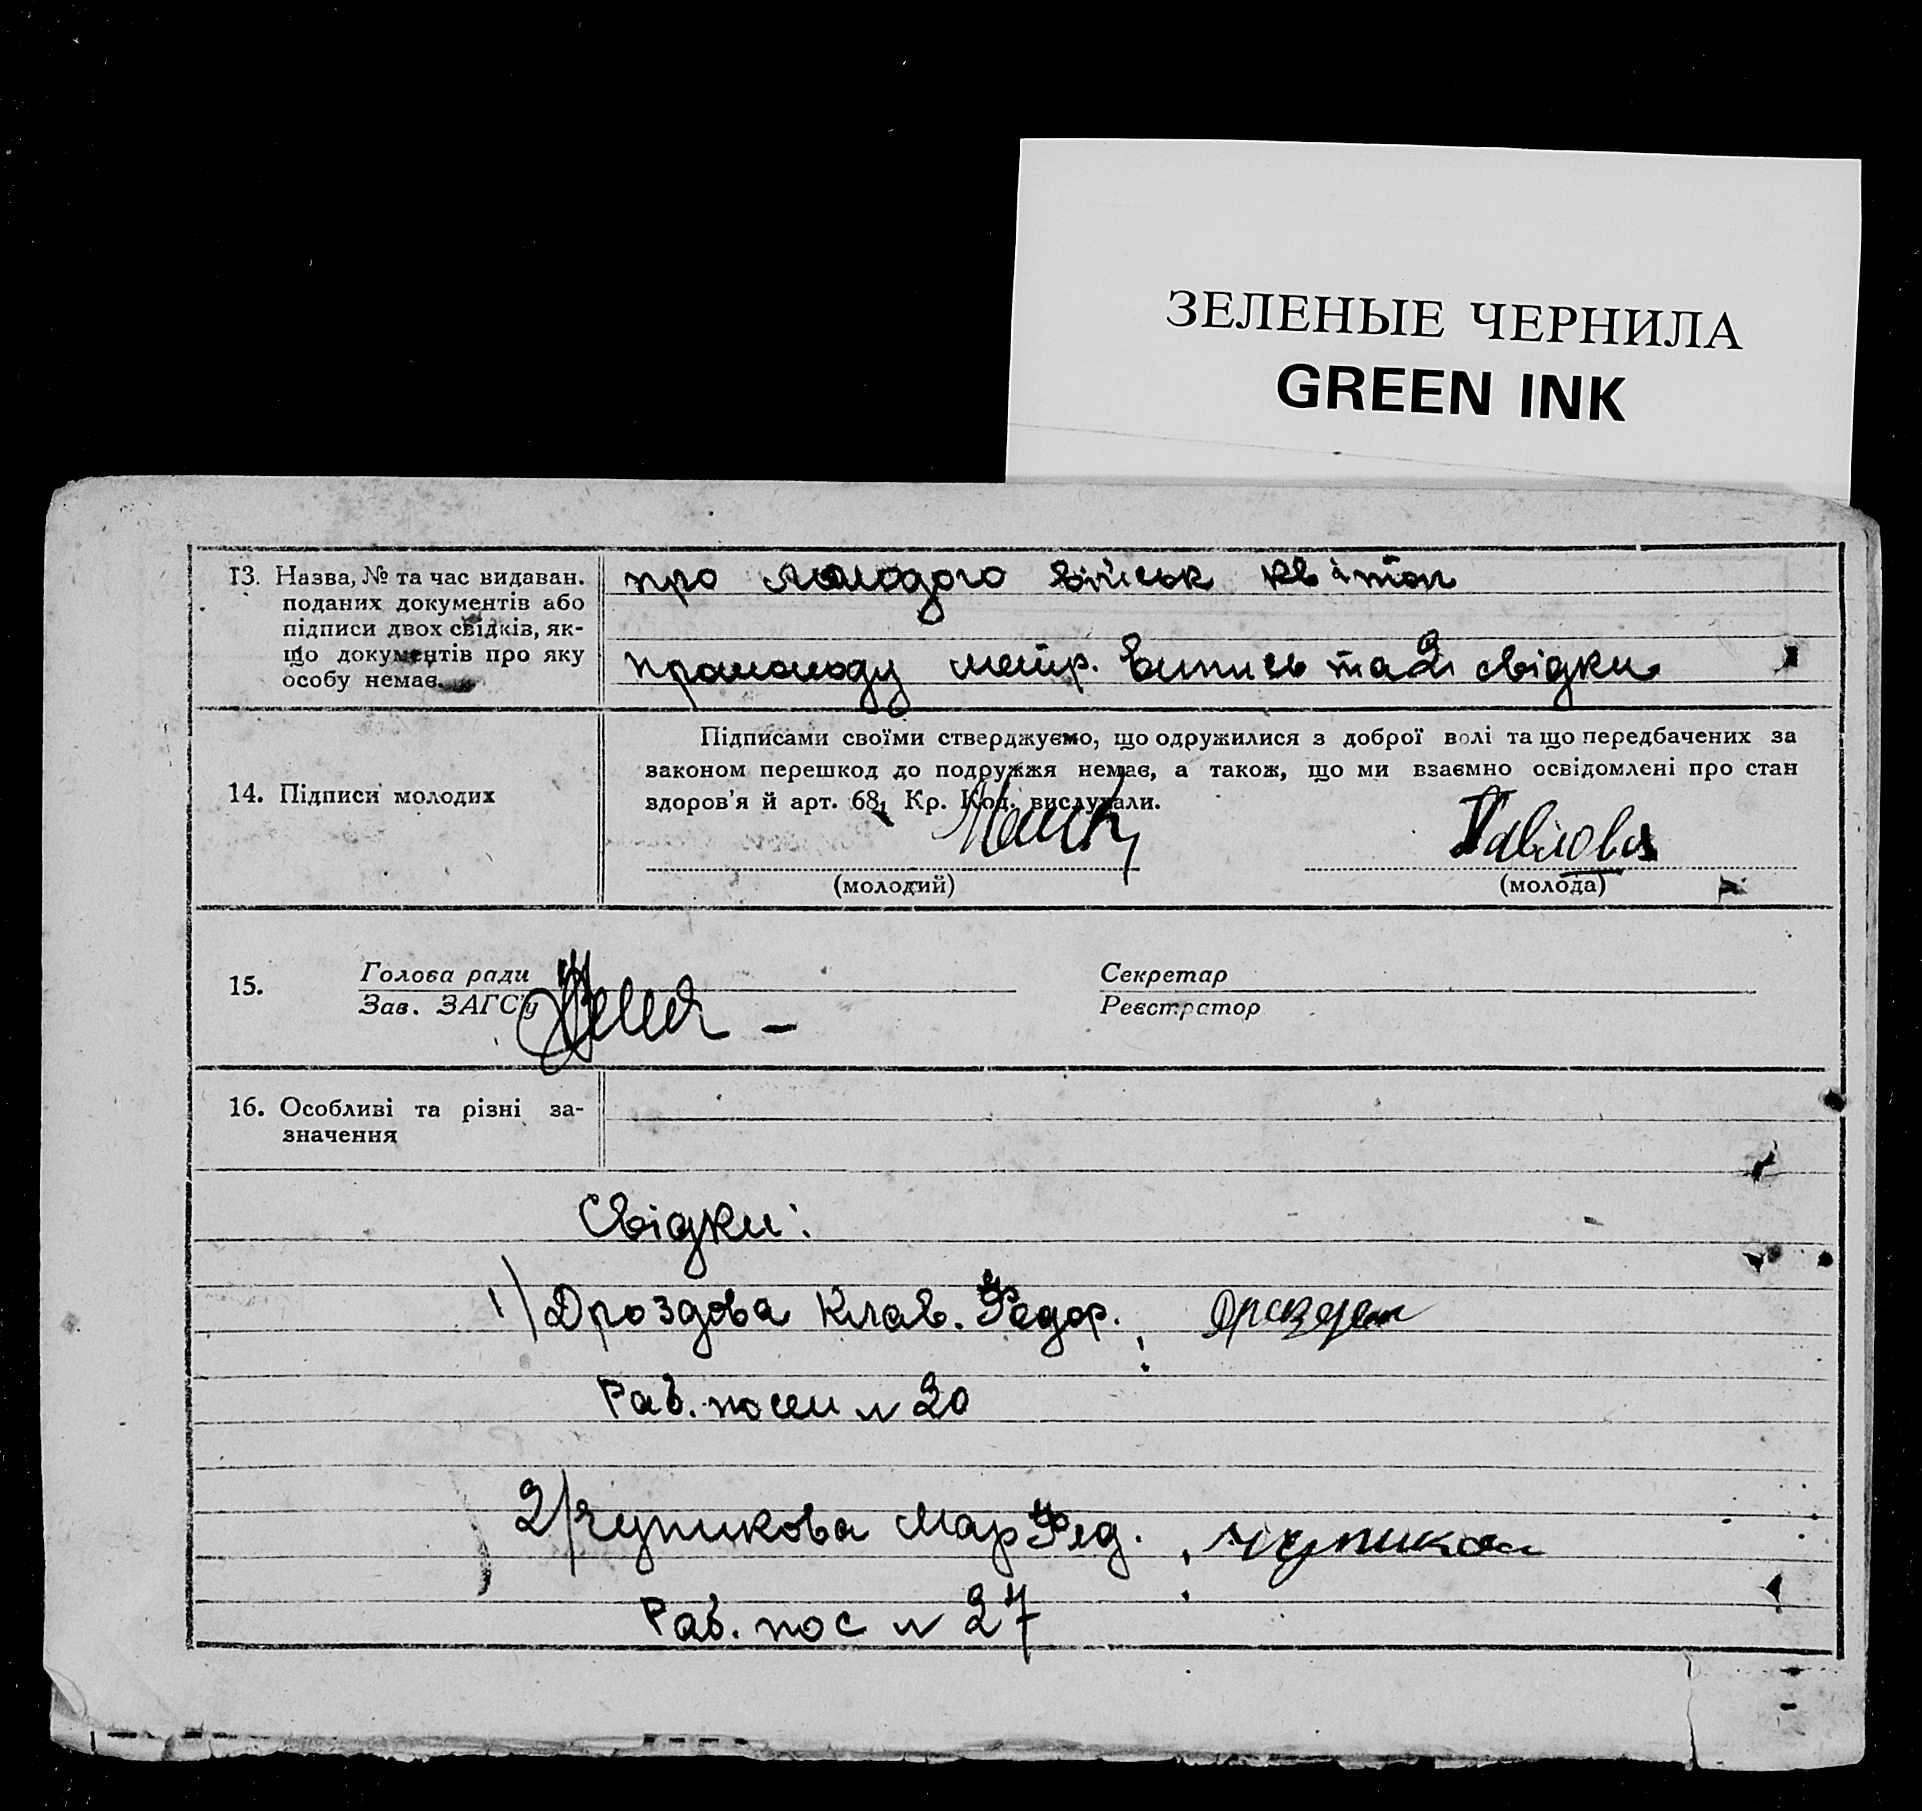 ЗЕЛЕНЫЕ ЧЕРНИЛА
GREEN INK
13. Назва, № та час видаван.
поданих документів або
підписи двох свідків, як-
що документів про яку
особу немає.
про молодого військ квіток
про молоду метр. випись та 2 свідки
14. Підписи молодих
Підписами своїми стверджуємо, що одружилися з доброї волі та що передбачених за
законом перешкод до подружжя немає, а також, що ми взаємно освідомлені про стан
здоров'я й арт. 68, Кр. Код. вислухали.
Павлова
(молодий) (молода)
15. Голова ради Секретар
Зав. ЗАГСу Реєстратор
16. Особливі та різні за-
значення
Свідки:
1) Дроздова Клав. Федор.
Раб. посел № 20
2) Чупикова Мар Фед.
Раб. пос № 27